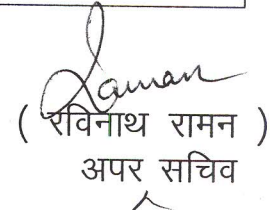 Raman
( रविनाथ रामन )
अपर सचिव